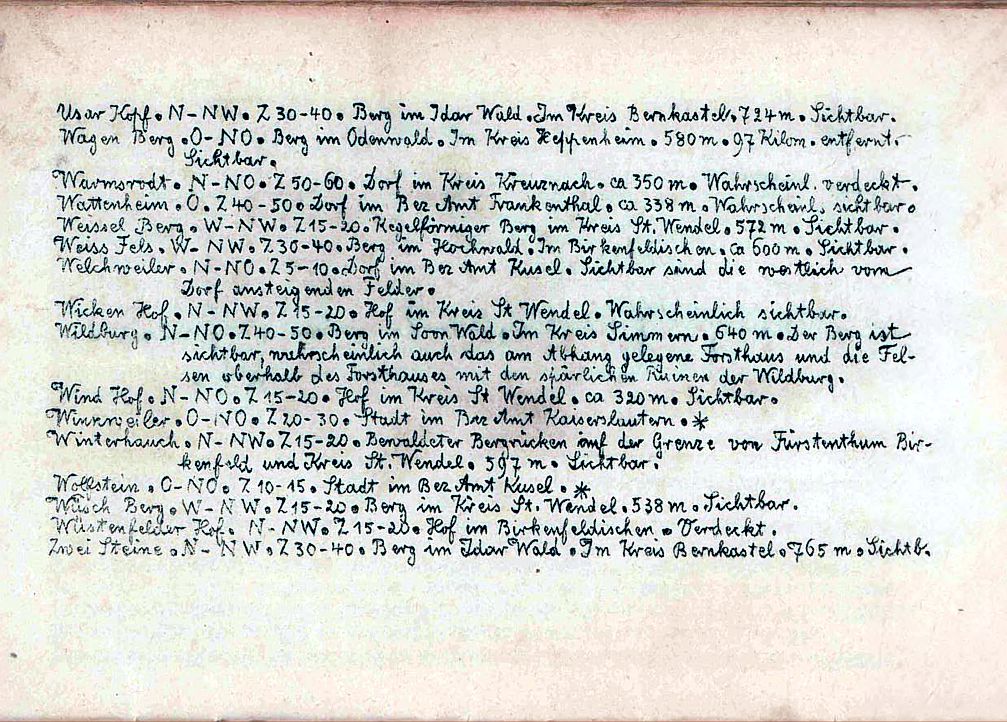 Usar Kopf. N-NW. Z 30-40. Berg im Idar Wald. Im Kreis Bernkastel. 724 m. Sichtbar.
Wagen Berg. O-NO. Berg im Odenwald. Im Kreis Heppenheim. 580 m. 97 Kilom. entfernt.
Sichtbar.
Warmsrodt. N-NO. Z 50-60. Dorf im Kreis Kreuznach. ca 350 m. Wahrscheinl. verdeckt.
Wattenheim. O. Z 40-50. Dorf im Bez Amt Frankenthal. ca 338 m. Wahrscheinl. sichtbar.
Weissel Berg. W-NW. Z 15-20. Kegelförmiger Berg im Kreis St. Wendel. 572 m. Sichtbar.
Weiss Fels. W-NW. Z 30-40. Berg im Hochwald. Im Birkenfeldischen. ca 600 m. Sichtbar.
Welchweiler. N-NO. Z 5-10. Dorf im Bez Amt Kusel. Sichtbar sind die westlich vom
Dorf ansteigenden Felder.
Wicken Hof. N-NW. Z 15-20. Hof im Kreis St Wendel. Wahrscheinlich sichtbar.
Wildburg. N-NO. Z 40-50. Berg im Soon Wald. Im Kreis Simmern. 640 m. Der Berg ist
sichtbar, wahrscheinlich auch das am Abhang gelegene Forsthaus und die Fel-
sen oberhalb des Forsthauses mit den spärlichen Ruinen der Wildburg.
Wind Hof. N-NO. Z 15-20. Hof im Kreis St Wendel. ca 320 m. Sichtbar.
Winnweiler. O-NO. Z 20-30. Stadt im Bez Amt Kaiserslautern. *
Winterhauch. N-NW. Z 15-20. Bewaldeter Bergrücken auf der Grenze von Fürstenthum Bir-
kenfeld und Kreis St. Wendel. 597 m. Sichtbar.
Wolfstein. O-NO. Z 10-15. Stadt im Bez Amt Kusel. *
Wüsch Berg. W-NW. Z 15-20. Berg im Kreis St. Wendel. 538 m. Sichtbar.
Wüstenfelder Hof. N-NW. Z 15-20. Hof im Birkenfeldischen. Verdeckt.
Zwei Steine. N-NW. Z 30-40. Berg im Idar Wald. Im Kreis Bernkastel. 765 m. Sichtb.